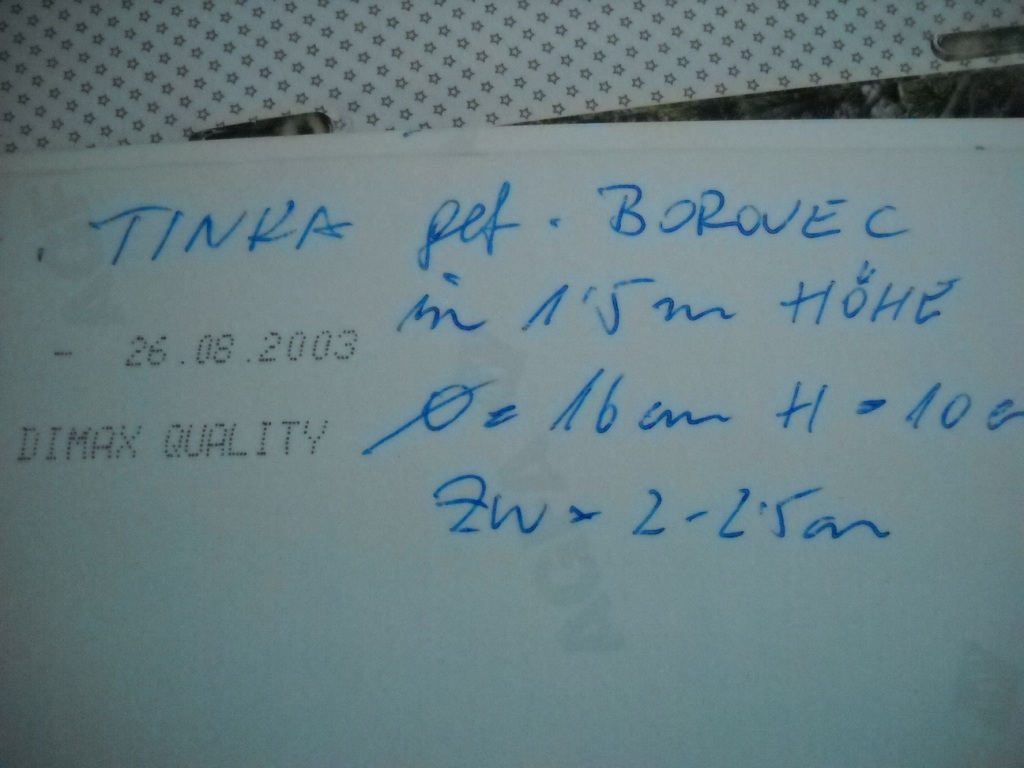 . TINKA gef. BOROVEC
in 1'5 m HÖHE
- 26.08.2003
Ø = 16 cm H = 10 c
DIMAX QUALITY
ZW = 2-2'5 cm
AGFA